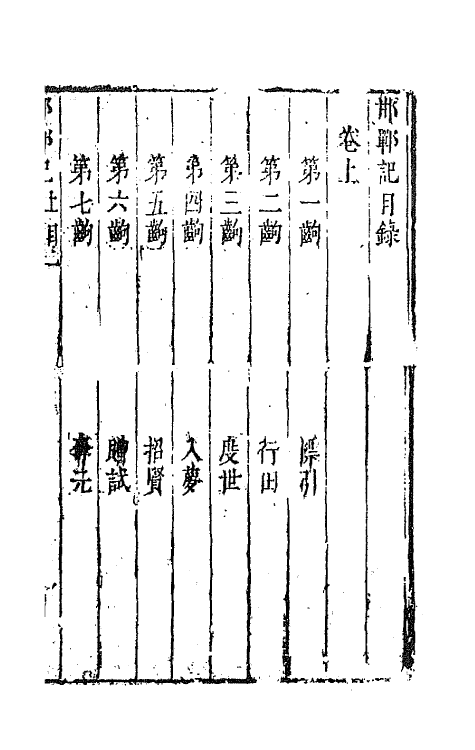 邯鄲記目錄
卷上
第一齣 標引
第二齣 行田
第三齣 度世
第四齣 入夢
第五齣 招賢
第六齣 贈試
第七齣 奪元